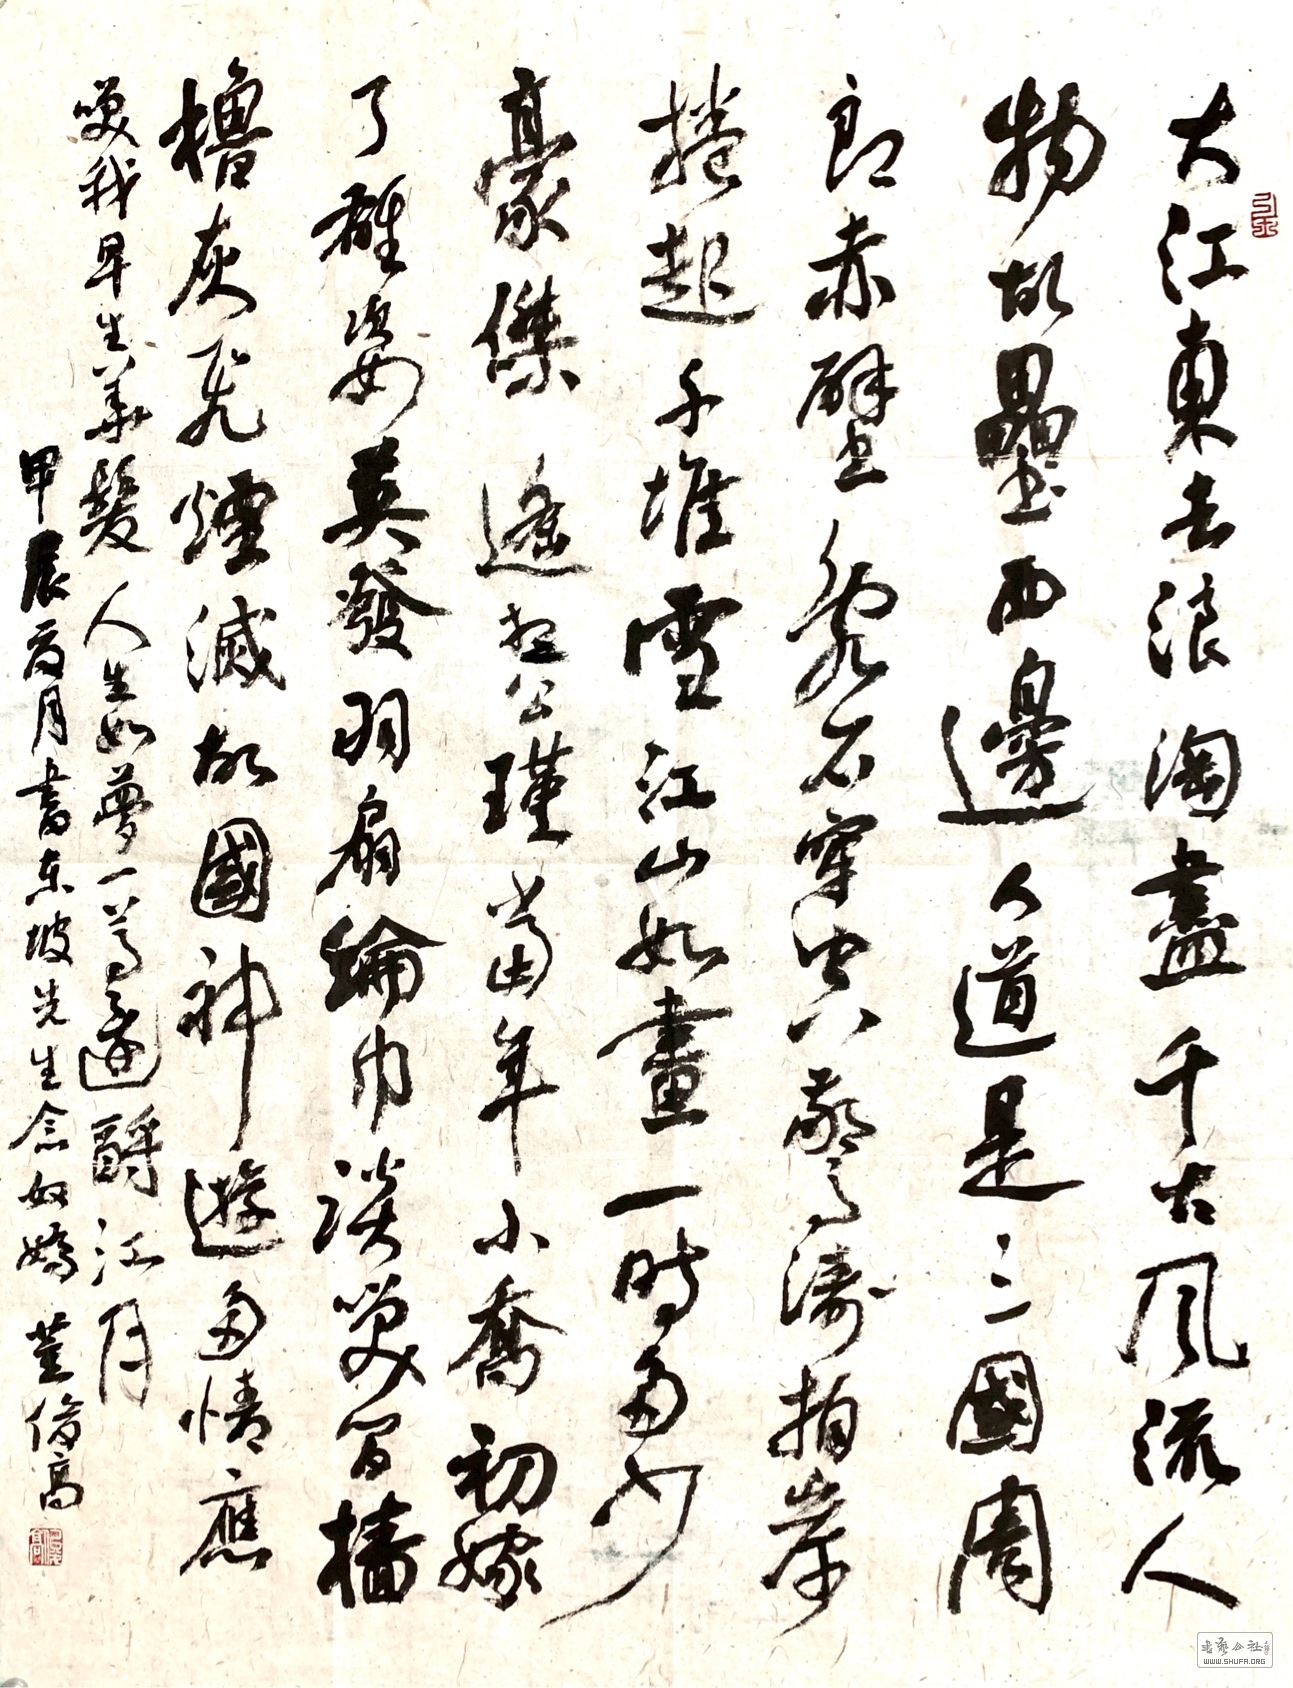 大江東去浪淘盡千古風流人
物故壘西邊人道是三國周
郎赤壁亂石穿空驚濤拍岸
捲起千堆雪江山如畫一時多少
豪傑遙想公瑾當年小喬初嫁
了雄姿英發羽扇綸巾談笑間檣
櫓灰飛煙滅故國神遊多情應
笑我早生華髮人生如夢一尊還酹江月
甲辰
月書東坡先生念奴嬌
董俊高
WWW.SHUFA.ORG